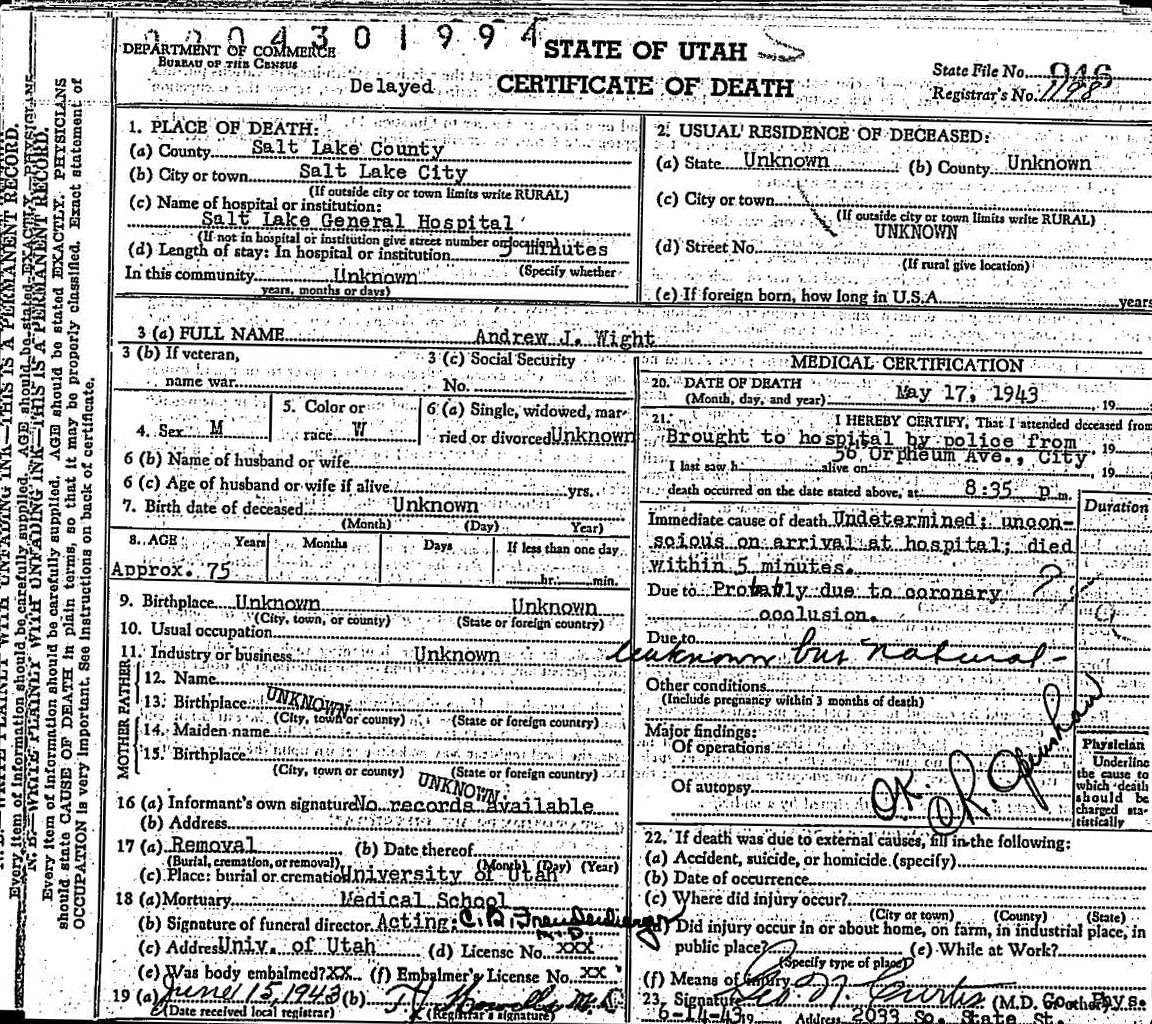 2204301994
DEPARTMENT OF COMMERCE
BUREAU OF THE CENSUS
Delayed
STATE OF UTAH
CERTIFICATE OF DEATH
State File No. 946
Registrar's No. 1198
1. PLACE OF DEATH:
(a) County Salt Lake County
(b) City or town Salt Lake City
(If outside city or town limits write RURAL)
(c) Name of hospital or institution:
Salt Lake General Hospital
(If not in hospital or institution give street number or location)
(d) Length of stay: In hospital or institution 5 minutes
(Specify whether
In this community Unknown
years, months or days)
2. USUAL RESIDENCE OF DECEASED:
(a) State Unknown (b) County Unknown
(c) City or town
(If outside city or town limits write RURAL)
UNKNOWN
(d) Street No.
(If rural give location)
(e) If foreign born, how long in U.S.A. years
3 (a) FULL NAME Andrew J. Wight
3 (b) If veteran,
name war
3 (c) Social Security
No.
4. Sex M
5. Color or
race W
6 (a) Single, widowed, mar-
ried or divorced Unknown
6 (b) Name of husband or wife
6 (c) Age of husband or wife if alive yrs.
7. Birth date of deceased Unknown
(Month) (Day) Year)
8. AGE Years Months Days If less than one day
Approx. 75 hr. min.
9. Birthplace Unknown Unknown
(City, town, or county) (State or foreign country)
10. Usual occupation
11. Industry or business Unknown
FATHER
12. Name
13. Birthplace UNKNOWN
(City, town or county) (State or foreign country)
MOTHER
14. Maiden name
15. Birthplace
(City, town or county) (State or foreign country)
UNKNOWN
16 (a) Informant's own signature No records available
(b) Address
17 (a) Removal (b) Date thereof
(Burial, cremation, or removal) (Month) (Day) (Year)
(c) Place: burial or cremation University of Utah
18 (a) Mortuary Medical School
(b) Signature of funeral director Acting: C. B. Freudenberger
M.D.
(c) Address Univ. of Utah (d) License No. XXX
(e) Was body embalmed? XX (f) Embalmer's License No. XX
19 (a) June 15, 1943 (b) M.D.
(Date received local registrar) (Registrar's signature)
MEDICAL CERTIFICATION
20. DATE OF DEATH
(Month, day, and year) May 17, 1943 19
21. I HEREBY CERTIFY, That I attended deceased from
Brought to hospital by police from 19
56 Orpheum Ave., City
I last saw h alive on 19
death occurred on the date stated above, at 8:35 p.m.
Duration
Immediate cause of death Undetermined; uncon-
scious on arrival at hospital; died
within 5 minutes.
Due to Probably due to coronary ?
occlusion.
Due to
unknown but natural-
Other conditions
(Include pregnancy within 3 months of death)
Major findings:
Of operations
Of autopsy
O.K. Openshaw
Physician
Underline
the cause to
which death
should be
charged sta-
tistically
22. If death was due to external causes, fill in the following:
(a) Accident, suicide, or homicide (specify)
(b) Date of occurrence
(c) Where did injury occur?
(City or town) (County) (State)
(d) Did injury occur in or about home, on farm, in industrial place, in
public place? (e) While at Work?
(Specify type of place)
(f) Means of injury
23. Signature Geo N. Curtis (M.D. or other) Co. Phys.
6-14-43 19 Address 2033 So. State St.
N. B.—WRITE PLAINLY WITH UNFADING INK—THIS IS A PERMANENT RECORD.
Every item of information should be carefully supplied. AGE should be stated EXACTLY. PHYSICIANS
should state CAUSE OF DEATH in plain terms, so that it may be properly classified. Exact statement of
OCCUPATION is very important. See instructions on back of certificate.